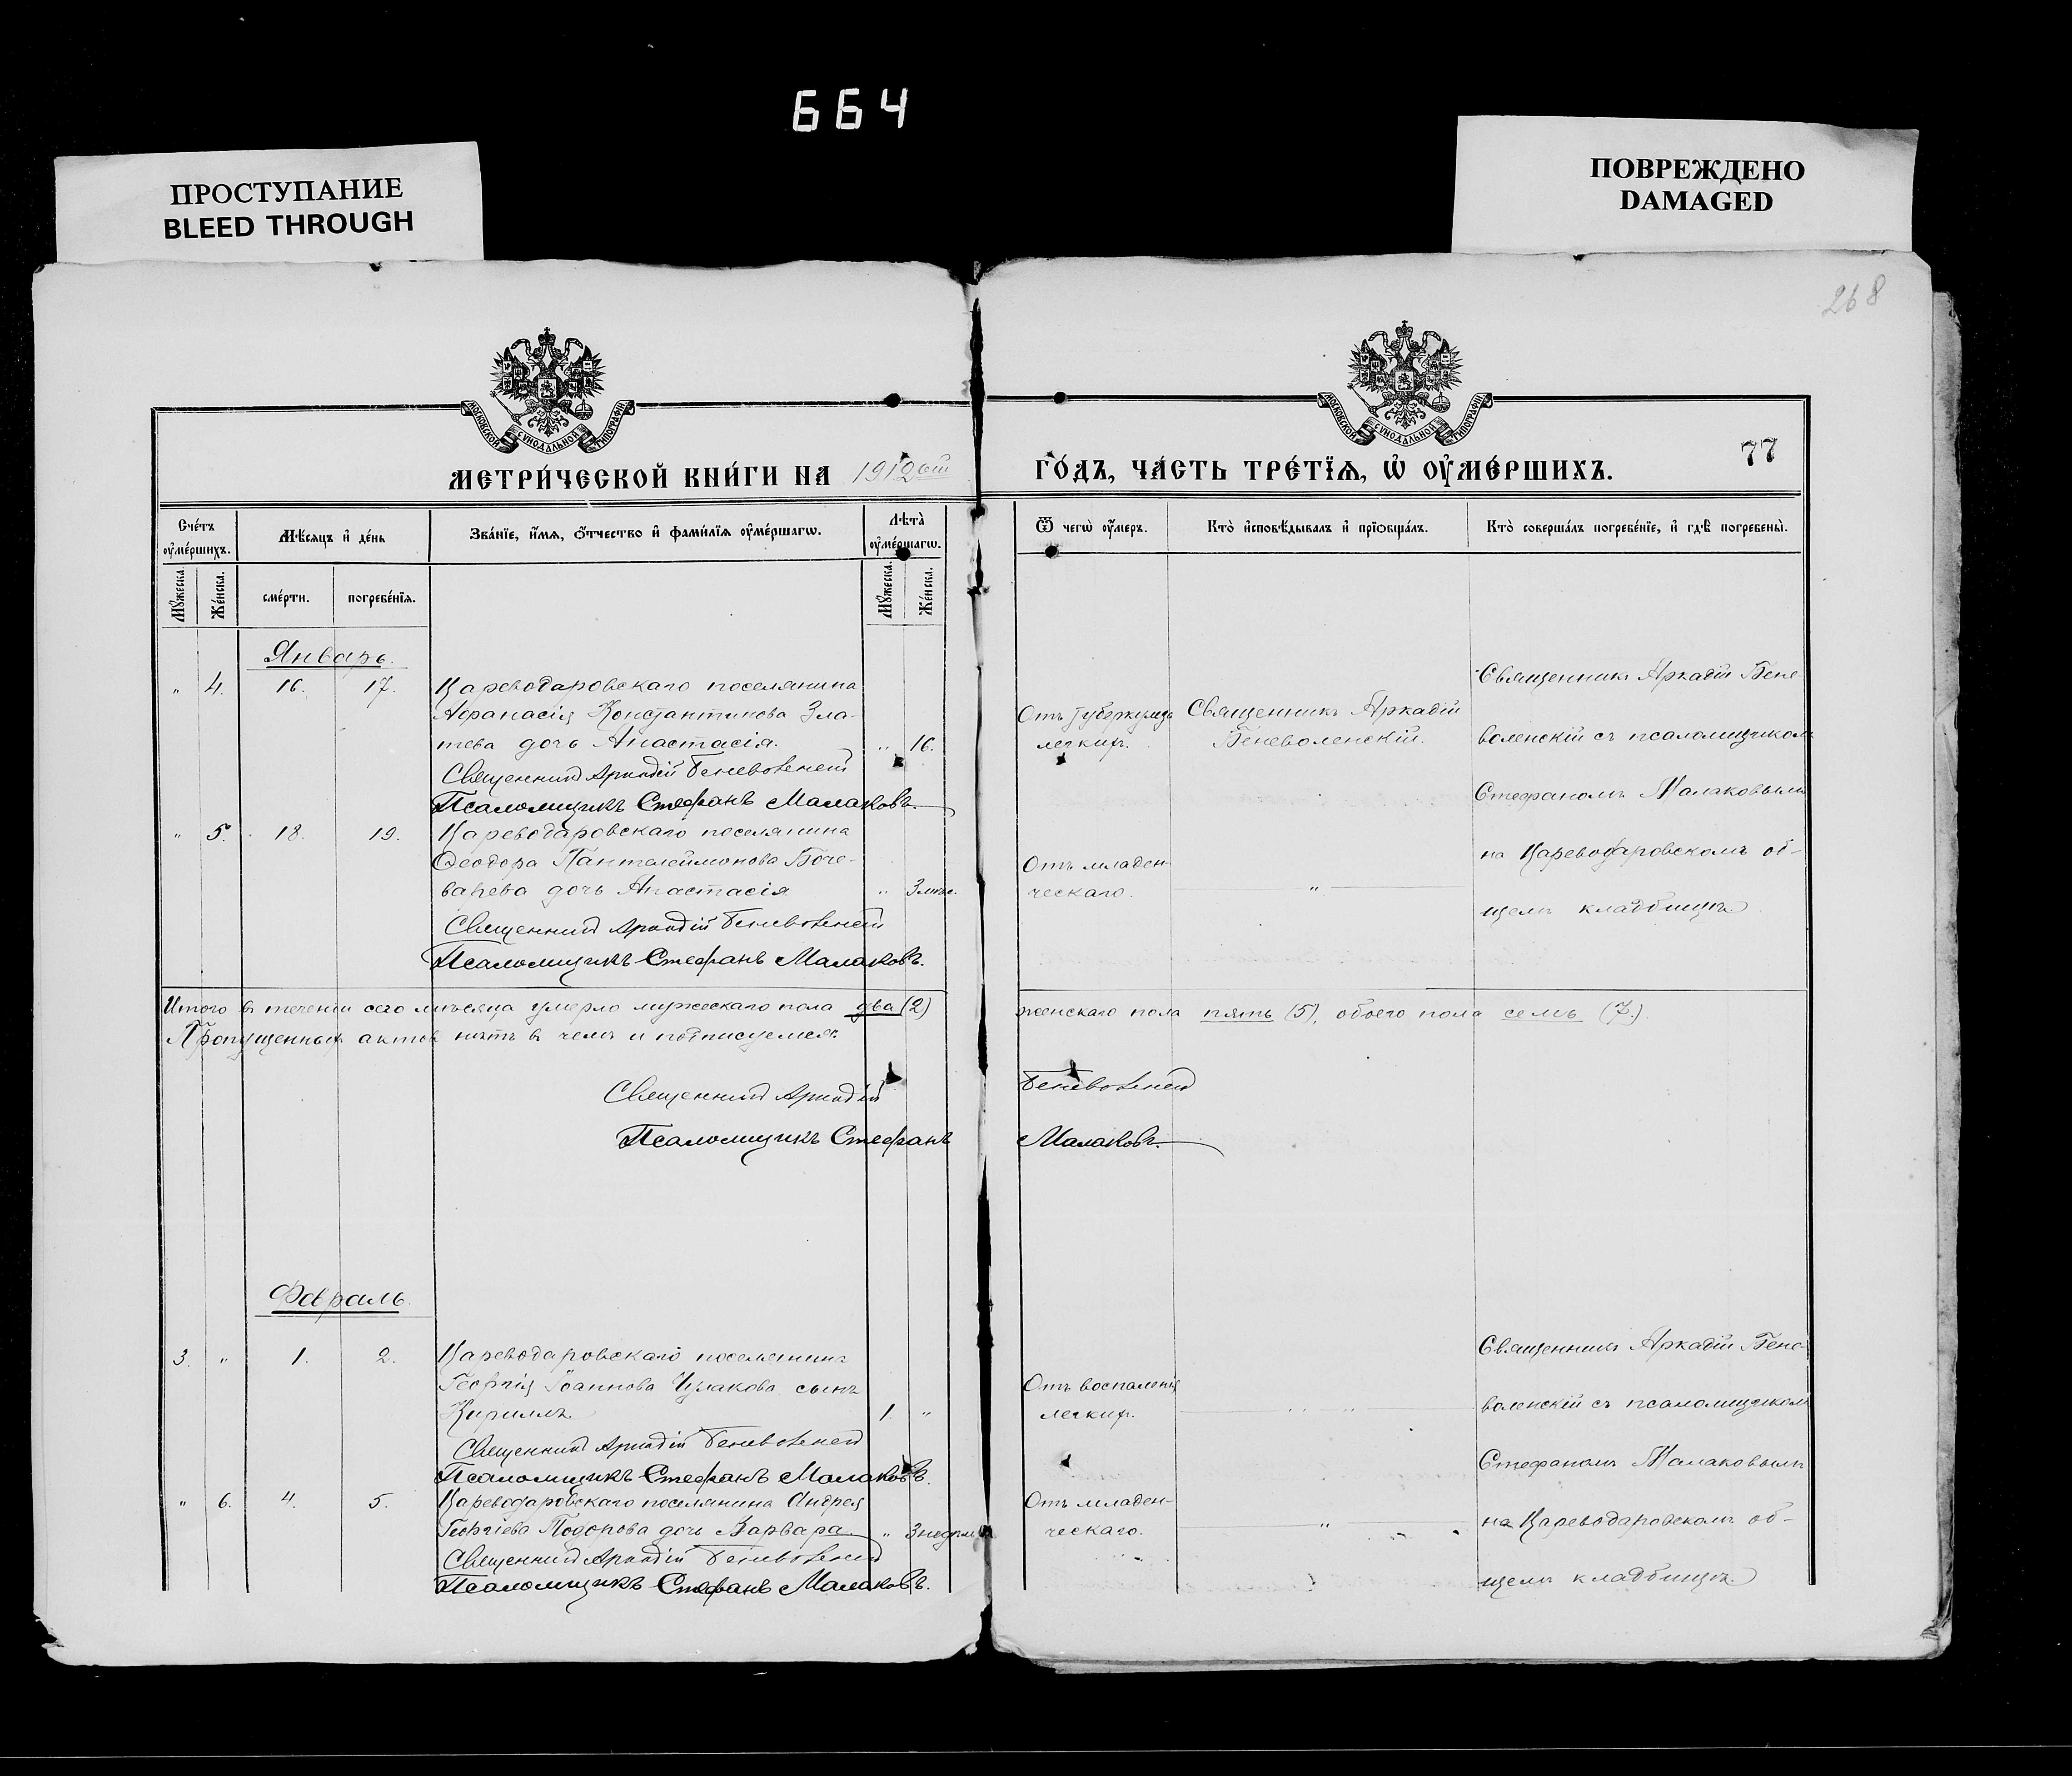 664
ПРОСТУПАНИЕ
BLEED THROUGH
ПОВРЕЖДЕНО
DAMAGED
268
МОСКОВСКОЙ СУНОДАЛЬНОЙ ТИПОГРАФІИ
МОСКОВСКОЙ СУНОДАЛЬНОЙ ТИПОГРАФІИ
МЕТРИ́ЧЕСКОЙ КНИ́ГИ НА 1912ый ГО́ДЪ, ЧА́СТЬ ТРЕ́ТЇѦ, Ѡ҆ ОУ҆МЕ́РШИХЪ.
77
Сче́тъ оу҆ме́ршихъ.
Мѣ́сяцъ и҆ де́нь
Зва́нїе, и҆́мя, ѻ҆́тчество и҆ фами́лїя оу҆ме́ршагѡ.
Лѣта̀ оу҆ме́ршагѡ.
Ѿ чегѡ̀ оу҆́меръ.
Кто̀ и҆сповѣ́дывалъ и҆ прїобща́лъ.
Кто̀ соверша́лъ погребе́нїе, и҆ гдѣ̀ погребены̀.
Мꙋ́жеска.
Же́нска.
сме́рти.
погребе́нїя.
Мꙋ́жеска.
Же́нска.
Январь.
" 4. 16. 17. Цареводаровскаго поселянина
Афанасія Константинова Зла-
тева дочь Анастасія. " 16.
Священникъ Аркадій Беневоленскій
Псаломщикъ Стефанъ Малаковъ.
Отъ туберкулеза
легкихъ.
Священникъ Аркадій
Беневоленскій.
Священникъ Аркадій Бене-
воленскій съ псаломщикомъ
Стефаномъ Малаковымъ
на Цареводаровскомъ об-
щемъ кладбищѣ
" 5. 18. 19. Цареводаровскаго поселянина
Ѳеодора Пантелеймонова Боче-
варева дочь Анастасія " 3 мѣс.
Священникъ Аркадій Беневоленскій
Псаломщикъ Стефанъ Малаковъ.
Отъ младен-
ческаго. "
Итого въ теченіи сего мѣсяца умерло мужескаго пола два (2) женскаго пола пять (5), обоего пола семь (7.)
Пропущенныхъ актовъ нѣтъ въ чемъ и подписуемся:
Священникъ Аркадій Беневоленскій
Псаломщикъ Стефанъ Малаковъ.
Февраль.
3. " 1. 2. Цареводаровскаго поселянина
Георгія Іоаннова Чулакова сынъ
Кириллъ. 1. "
Священникъ Аркадій Беневоленскій
Псаломщикъ Стефанъ Малаковъ.
Отъ воспаленія
легкихъ. " "
Священникъ Аркадій Бене-
воленскій съ псаломщикомъ
Стефаномъ Малаковымъ
на Цареводаровскомъ об-
щемъ кладбищѣ.
" 6. 4. 5. Цареводаровскаго поселянина Андрея
Георгіева Тодорова дочь Варвара " 3 недѣли
Священникъ Аркадій Беневоленскій
Псаломщикъ Стефанъ Малаковъ.
Отъ младен-
ческаго. "